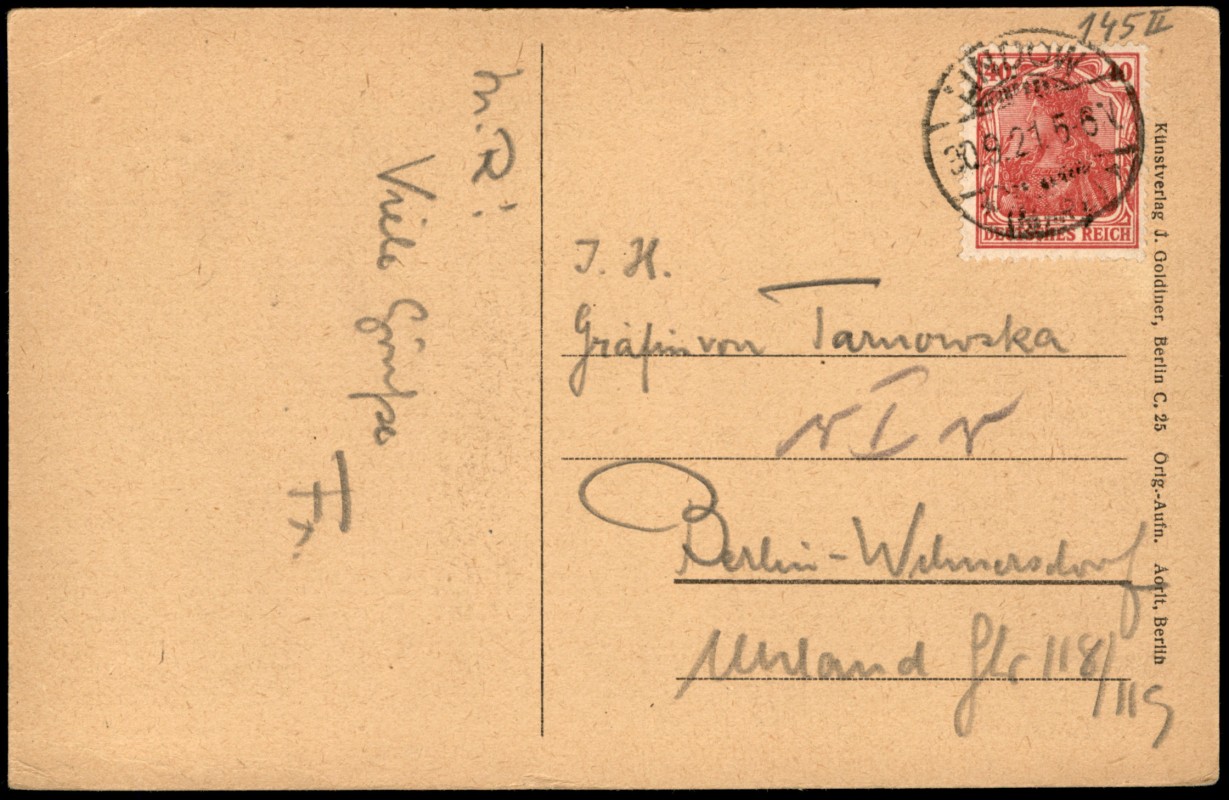 145 II
40 40
30.9.21. 5-6 N
DEUTSCHES REICH
L. R!
Viele Grüße
Fr.
I. H.
Gräfin von Tarnowska
I
Berlin-Wilmersdorf
Uhland Str 118/
119
Kunstverlag J. Goldiner, Berlin C. 25 Orig.-Aufn. Berlin